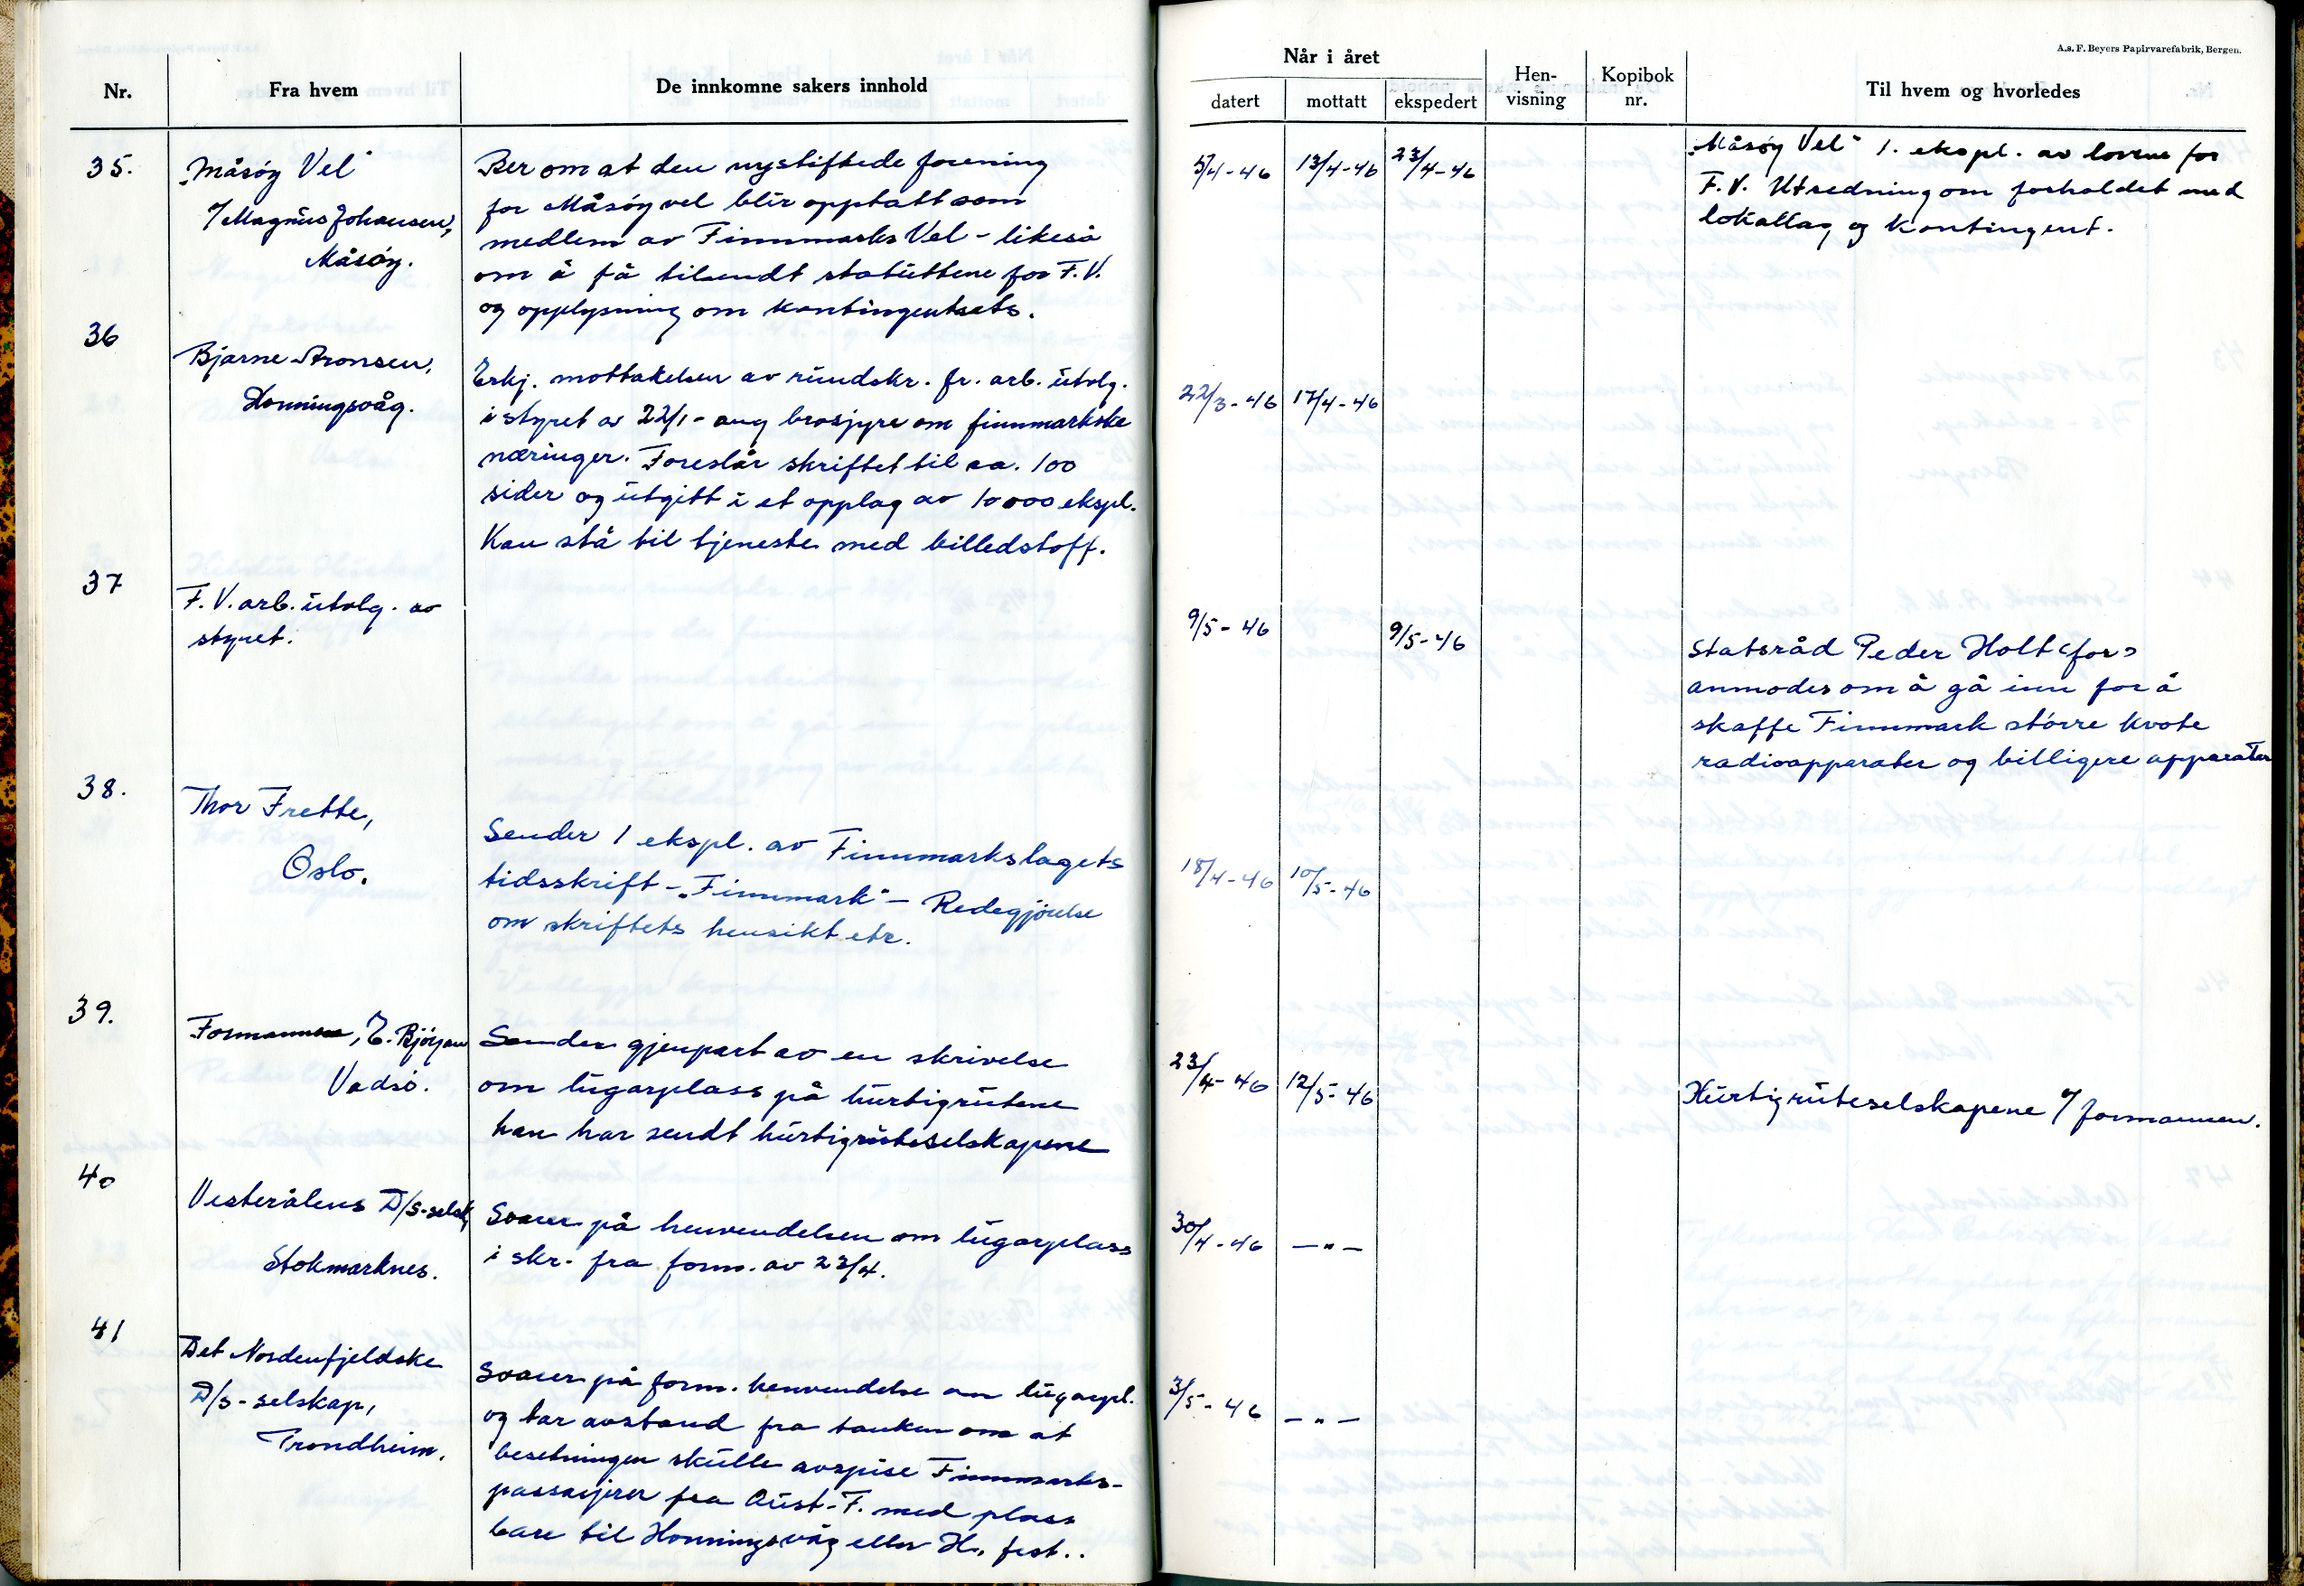 Nr.
Fra hvem
De innkomne sakers innhold
35.
„Måsøy Vel"
v/Magnus Johansen,
Måsøy.
Ber om at den nystiftede forening
for Måsøy vel blir opptatt som
medlem av Finnmarks Vel - likeså
om å få tilsendt statuttene for F.V.
og opplysning om kontingentsats.
36
Bjarne Aronsen,
Honningsvåg.
Erkj. mottakelsen av rundskr. fr. arb. utvlg.
i styret av 22/1 - ang brosjyre om finnmarkske
næringer. Foreslår skriftet til ca. 100
sider og utgitt i et opplag av 10000 ekspl.
Kan stå til tjeneste med billedstoff.
37
F.V. arb. utvlg. av
styret.
38.
Thor Frette,
Oslo.
Sender 1 ekspl. av Finnmarkslagets
tidsskrift - „Finnmark" - Redegjörelse
om skriftets hensikt etc.
39.
Formannen, E. Bjørjan
Vadsö.
Sender gjenpart av en skrivelse
om lugarplass på hurtigrutene
han har sendt hurtigruteselskapene
40
Vesterålens D/S-selsk,
Stokmarknes.
Svarer på henvendelsen om lugarplass
i skr. fra form. av 23/4.
41
Det Nordenfjeldske
D/S-selskap,
Trondheim.
Svarer på form. henvendelse om lugarpl.
og tar avstand fra tanken om at
besetningen skulle avspise Finnmarks-
passasjerer fra Aust-F. med plass
bare til Honningsvåg eller H. fest..
A.s. F. Beyers Papirvarefabrik, Bergen.
Når i året
datert
mottatt
ekspedert
Hen-
visning
Kopibok
nr.
Til hvem og hvorledes
5/4-46 13/4-46 23/4-46
„Måsøy Vel" 1. ekspl. av lovene for
F.V. Utredning om forholdet med
lokallag og kontingent.
22/3-46 17/4-46
9/5-46 9/5-46
Statsråd Peder Holt <for>
anmodes om å gå inn for å
skaffe Finnmark større kvote
radioapparater og billigere apparater
18/4-46 10/5-46
23/4-46 12/5-46
Hurtigruteselskapene v/formannen.
30/4-46 —"—
3/5-46 —"—